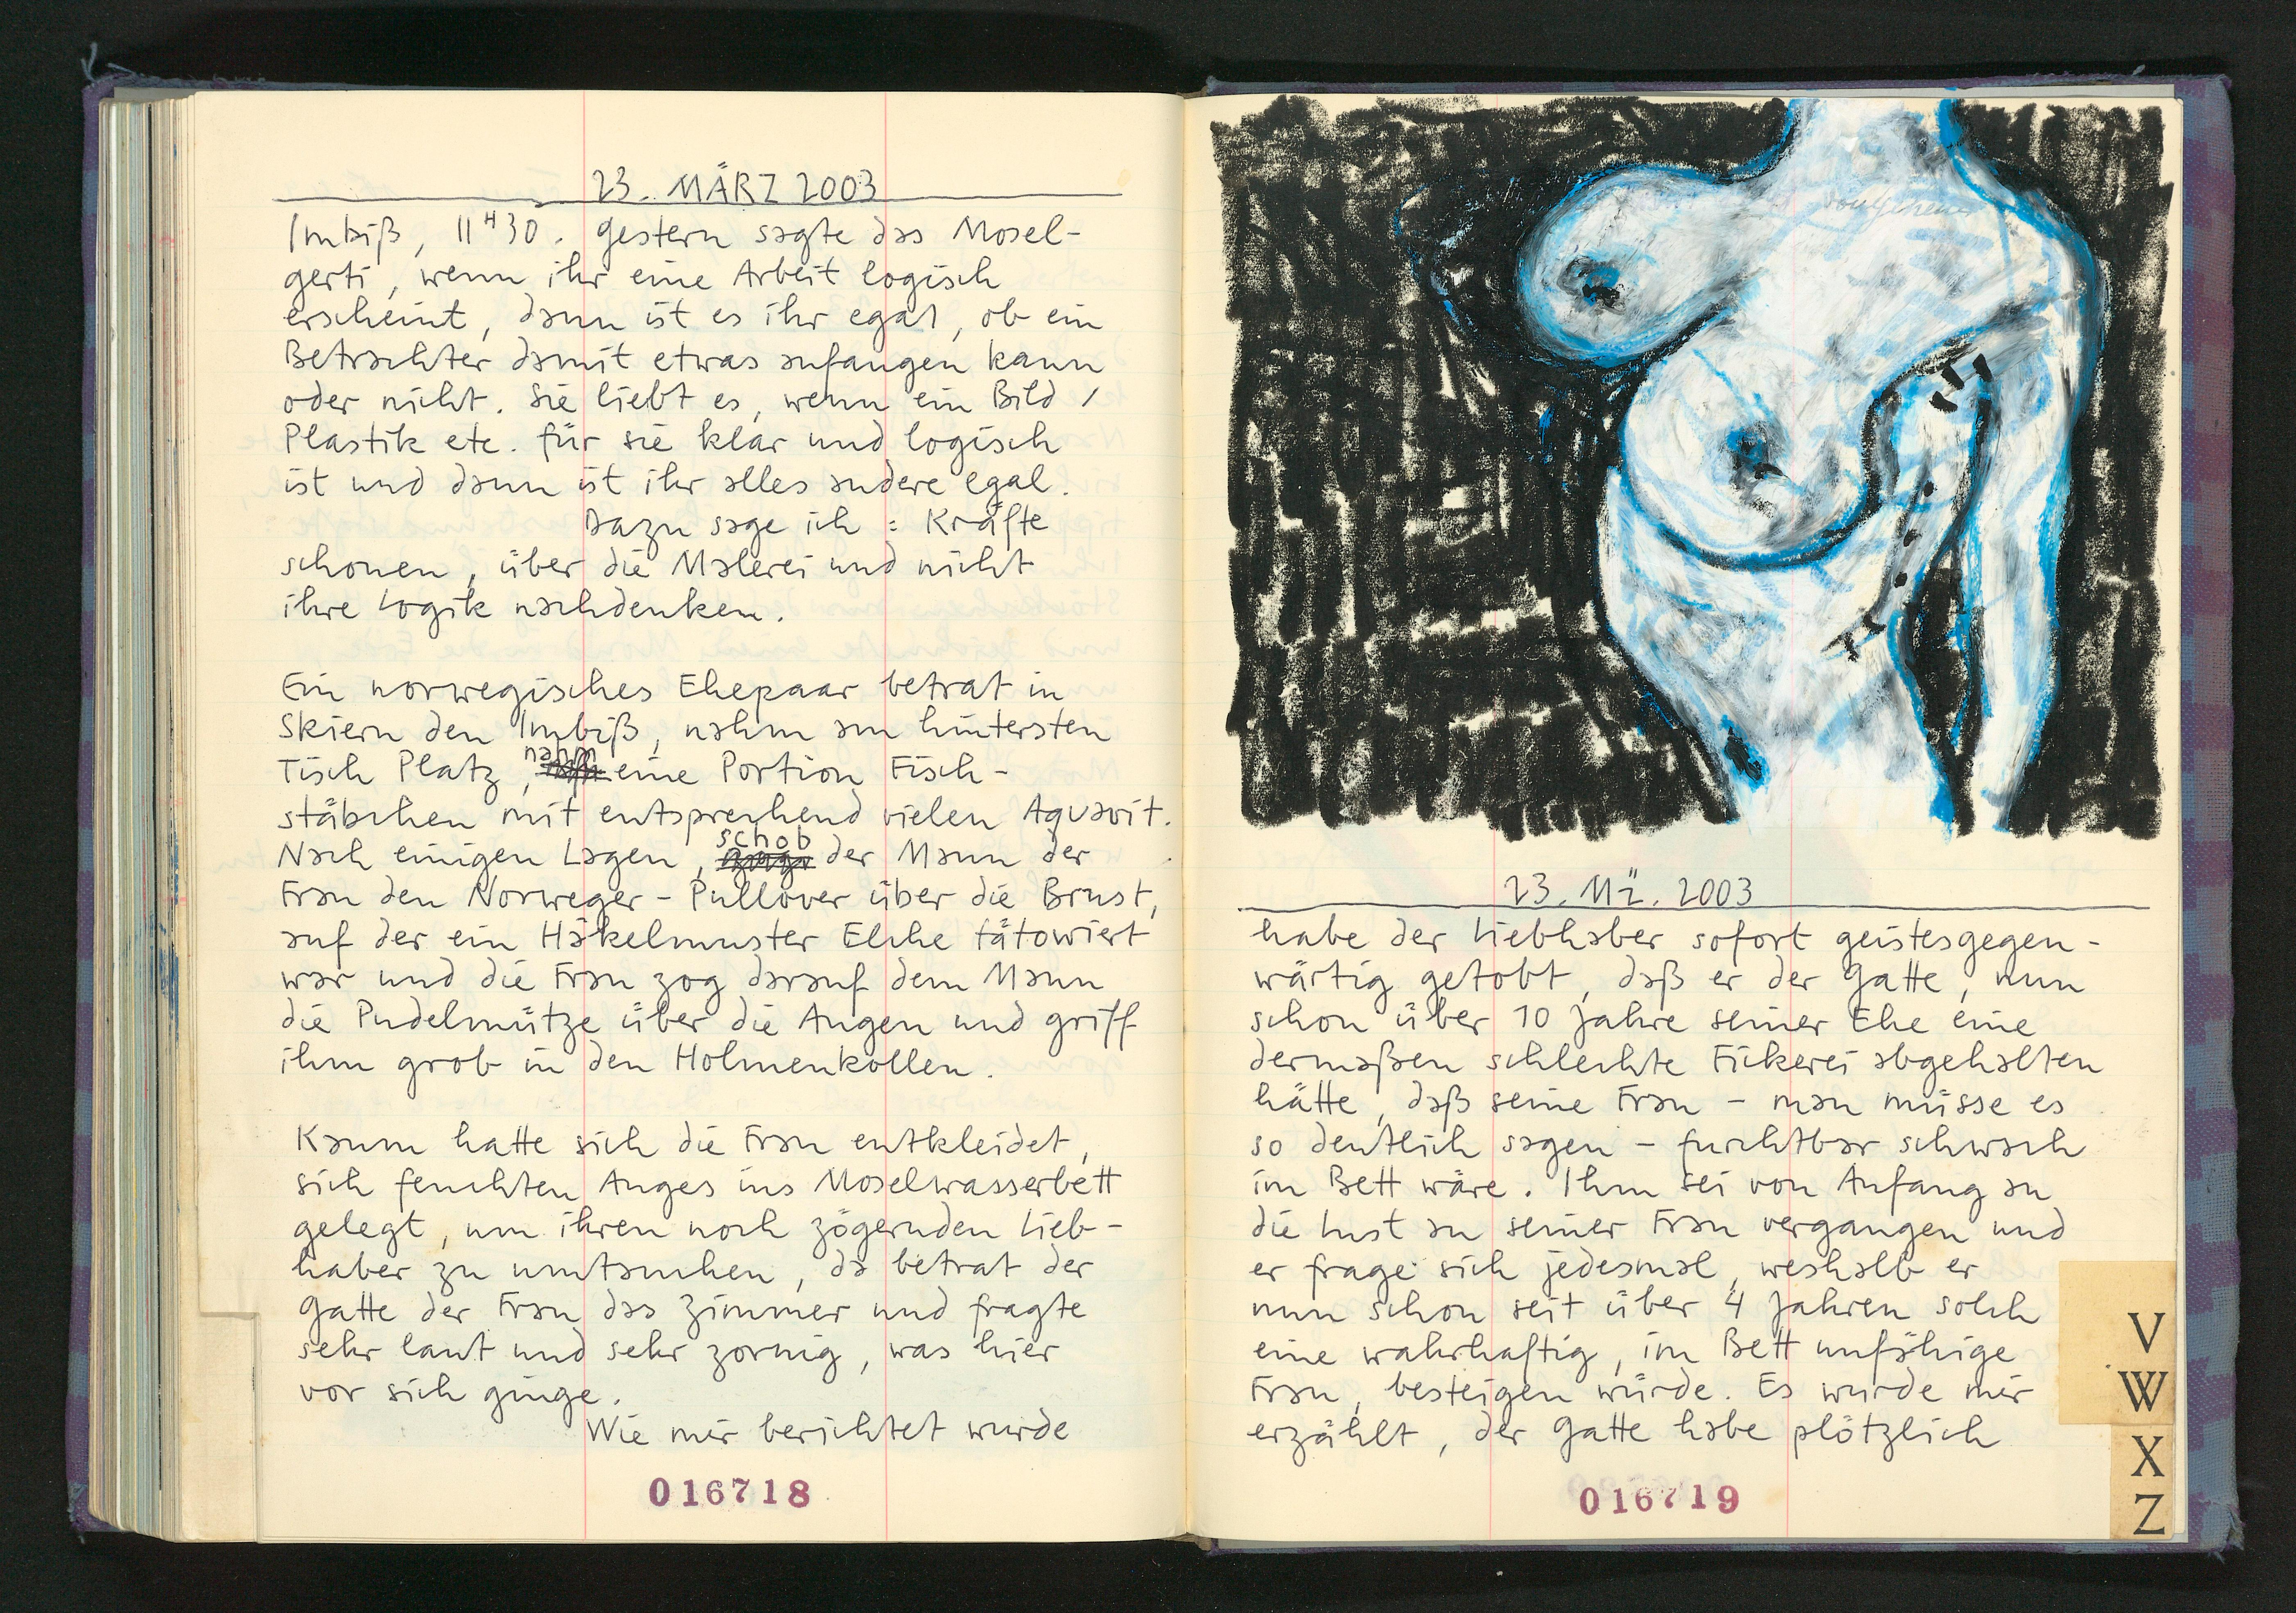 23. MÄRZ 2003
Imbiß, 11H30. Gestern sagte das Mosel-
gerti, wenn ihr eine Arbeit logisch
erscheint, dann ist es ihr egal, ob ein
Betrachter damit etwas anfangen kann
oder nicht. Sie liebt es, wenn ein Bild /
Plastik etc. für sie klar und logisch
ist und dann ist ihr alles andere egal.
Dazu sage ich : Kräfte
schonen, über die Malerei und nicht
ihre Logik nachdenken.
Ein norwegisches Ehepaar betrat in
Skiern den Imbiß, nahm am hintersten
Tisch Platz, nahm eine Portion Fisch-
stäbchen mit entsprechend vielen Aquavit.
Nach einigen Lagen, schob der Mann der
Frau den Norweger-Pullover über die Brust,
auf der ein Häkelmuster Elche tätowiert
war und die Frau zog darauf dem Mann
die Pudelmütze über die Augen und griff
ihm grob in den Holmenkollen.
Kaum hatte sich die Frau entkleidet,
sich feuchten Auges ins Moselwasserbett
gelegt, um ihren noch zögernden Lieb-
haber zu umtauchen, da betrat der
Gatte der Frau das Zimmer und fragte
sehr laut und sehr zornig, was hier
vor sich ginge.
Wie mir berichtet wurde
016718
23. MÄ. 2003
habe der Liebhaber sofort geistesgegen-
wärtig getobt, daß er der Gatte, nun
schon über 10 Jahre seiner Ehe eine
dermaßen schlechte Fickerei abgehalten
hätte, daß seine Frau - man müsse es
so deutlich sagen - furchtbar schwach
im Bett wäre. Ihm sei von Anfang an
die Lust an seiner Frau vergangen und
er frage sich jedesmal, weshalb er
nun schon seit über 4 Jahren solch
eine wahrhaftig, im Bett unfähige
Frau, besteigen würde. Es wurde mir
erzählt, der Gatte habe plötzlich
016719
V
W
X
Z